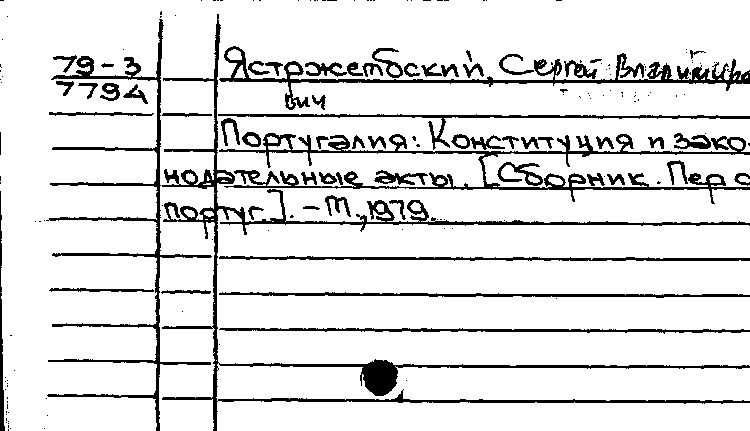 79-3
7794
Ястржембский, Сергей Владимиро
вич
Португалия: Конституция и зако-
нодательные акты. [Сборник. Пер с
португ.]. - М., 1979.